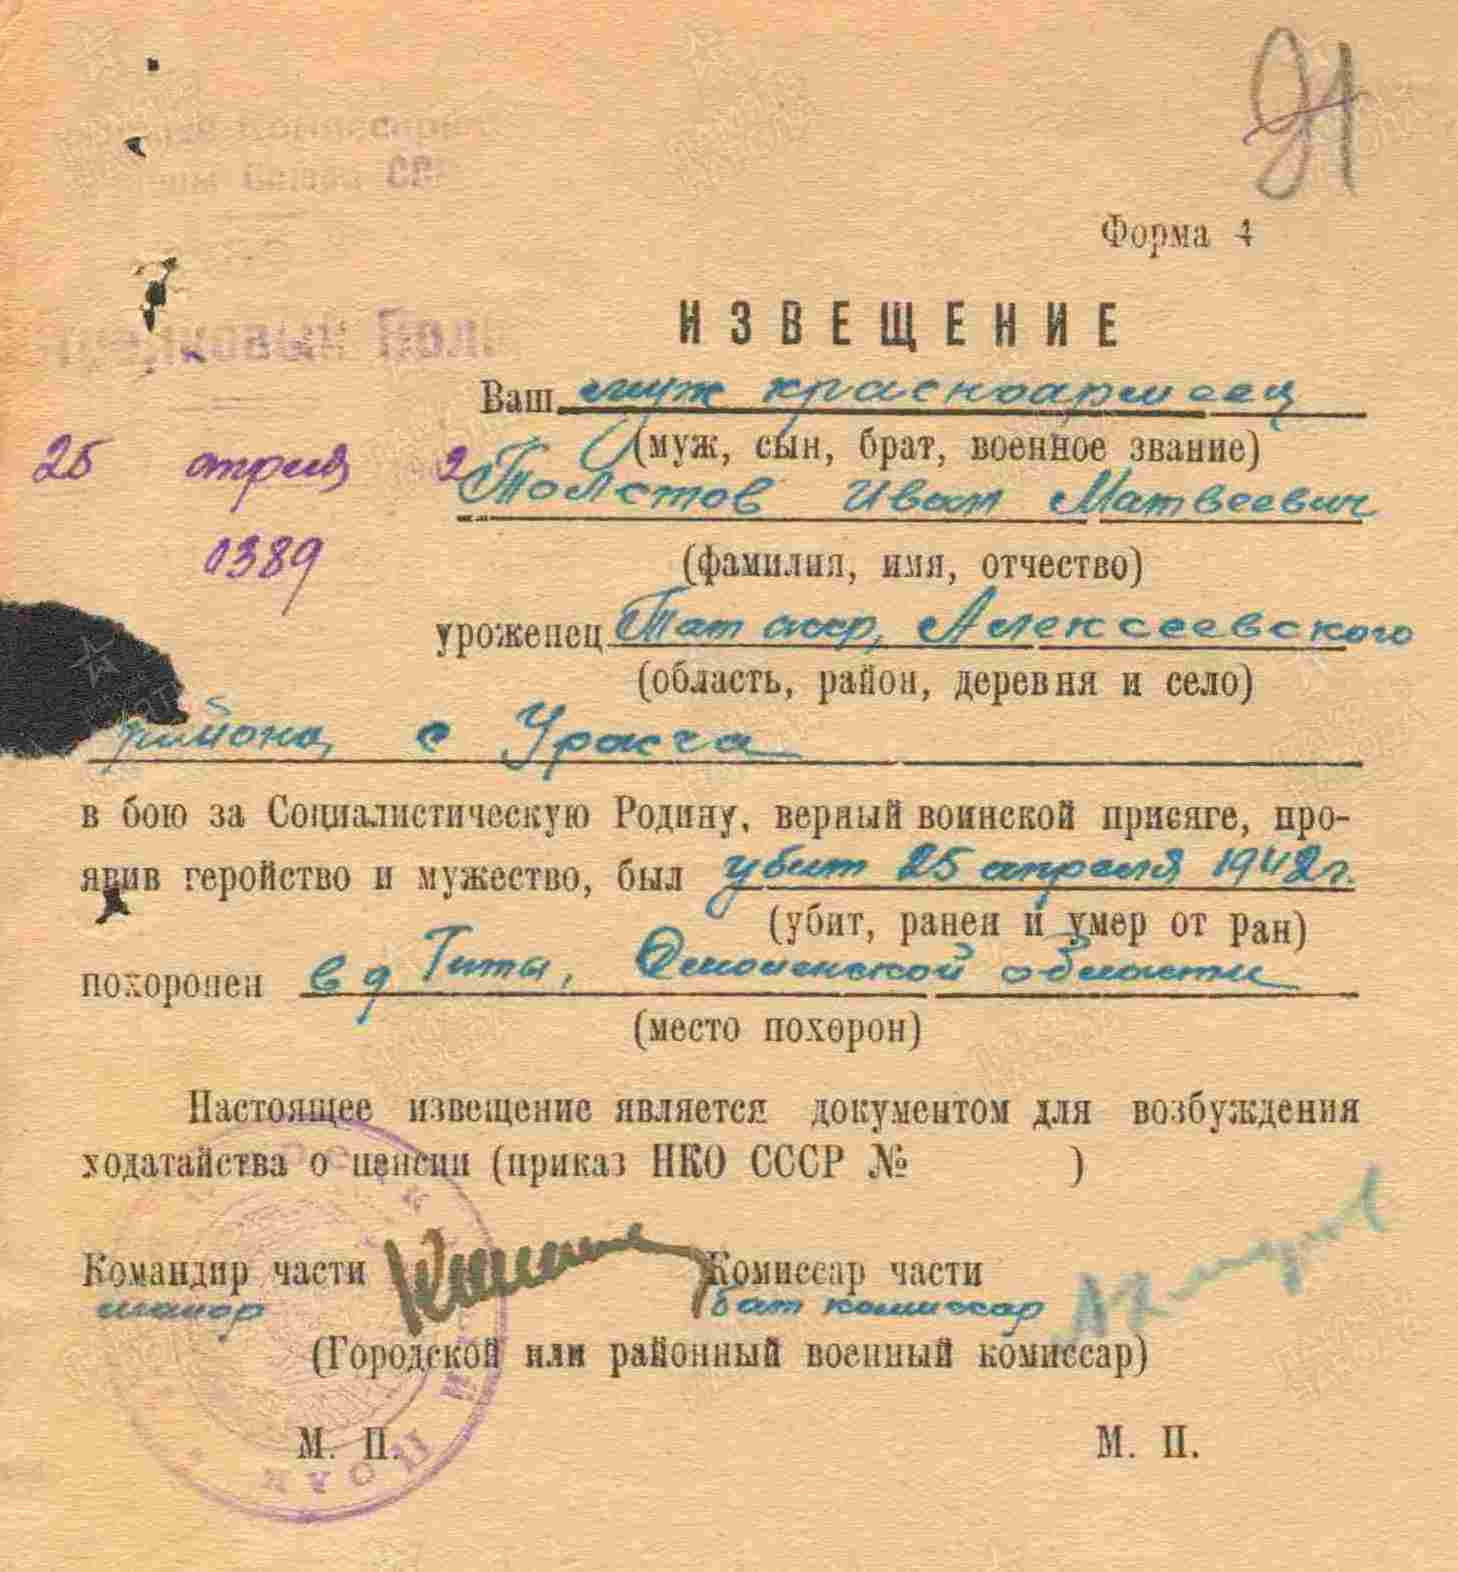 91
Форма 4
ИЗВЕЩЕНИЕ
Стрелковый Полк
Ваш муж красноармеец
(муж, сын, брат, военное звание)
25 апреля 2
Толстов Иван Матвеевич
1389
(фамилия, имя, отчество)
уроженец Тат сср, Алексеевского
(область, район, деревня и село)
района, с Урасга
в бою за Социалистическую Родину, верный воинской присяге, про-
явив геройство и мужество, был убит 25 апреля 1942 г.
(убит, ранен и умер от ран)
похоронен в д Титы, Смоленской области
(место похорон)
Настоящее извещение является документом для возбуждения
ходатайства о пенсии (приказ НКО СССР № )
Командир части Комиссар части
майор бат комиссар
(Городской или районный военный комиссар)
М. П. М. П.